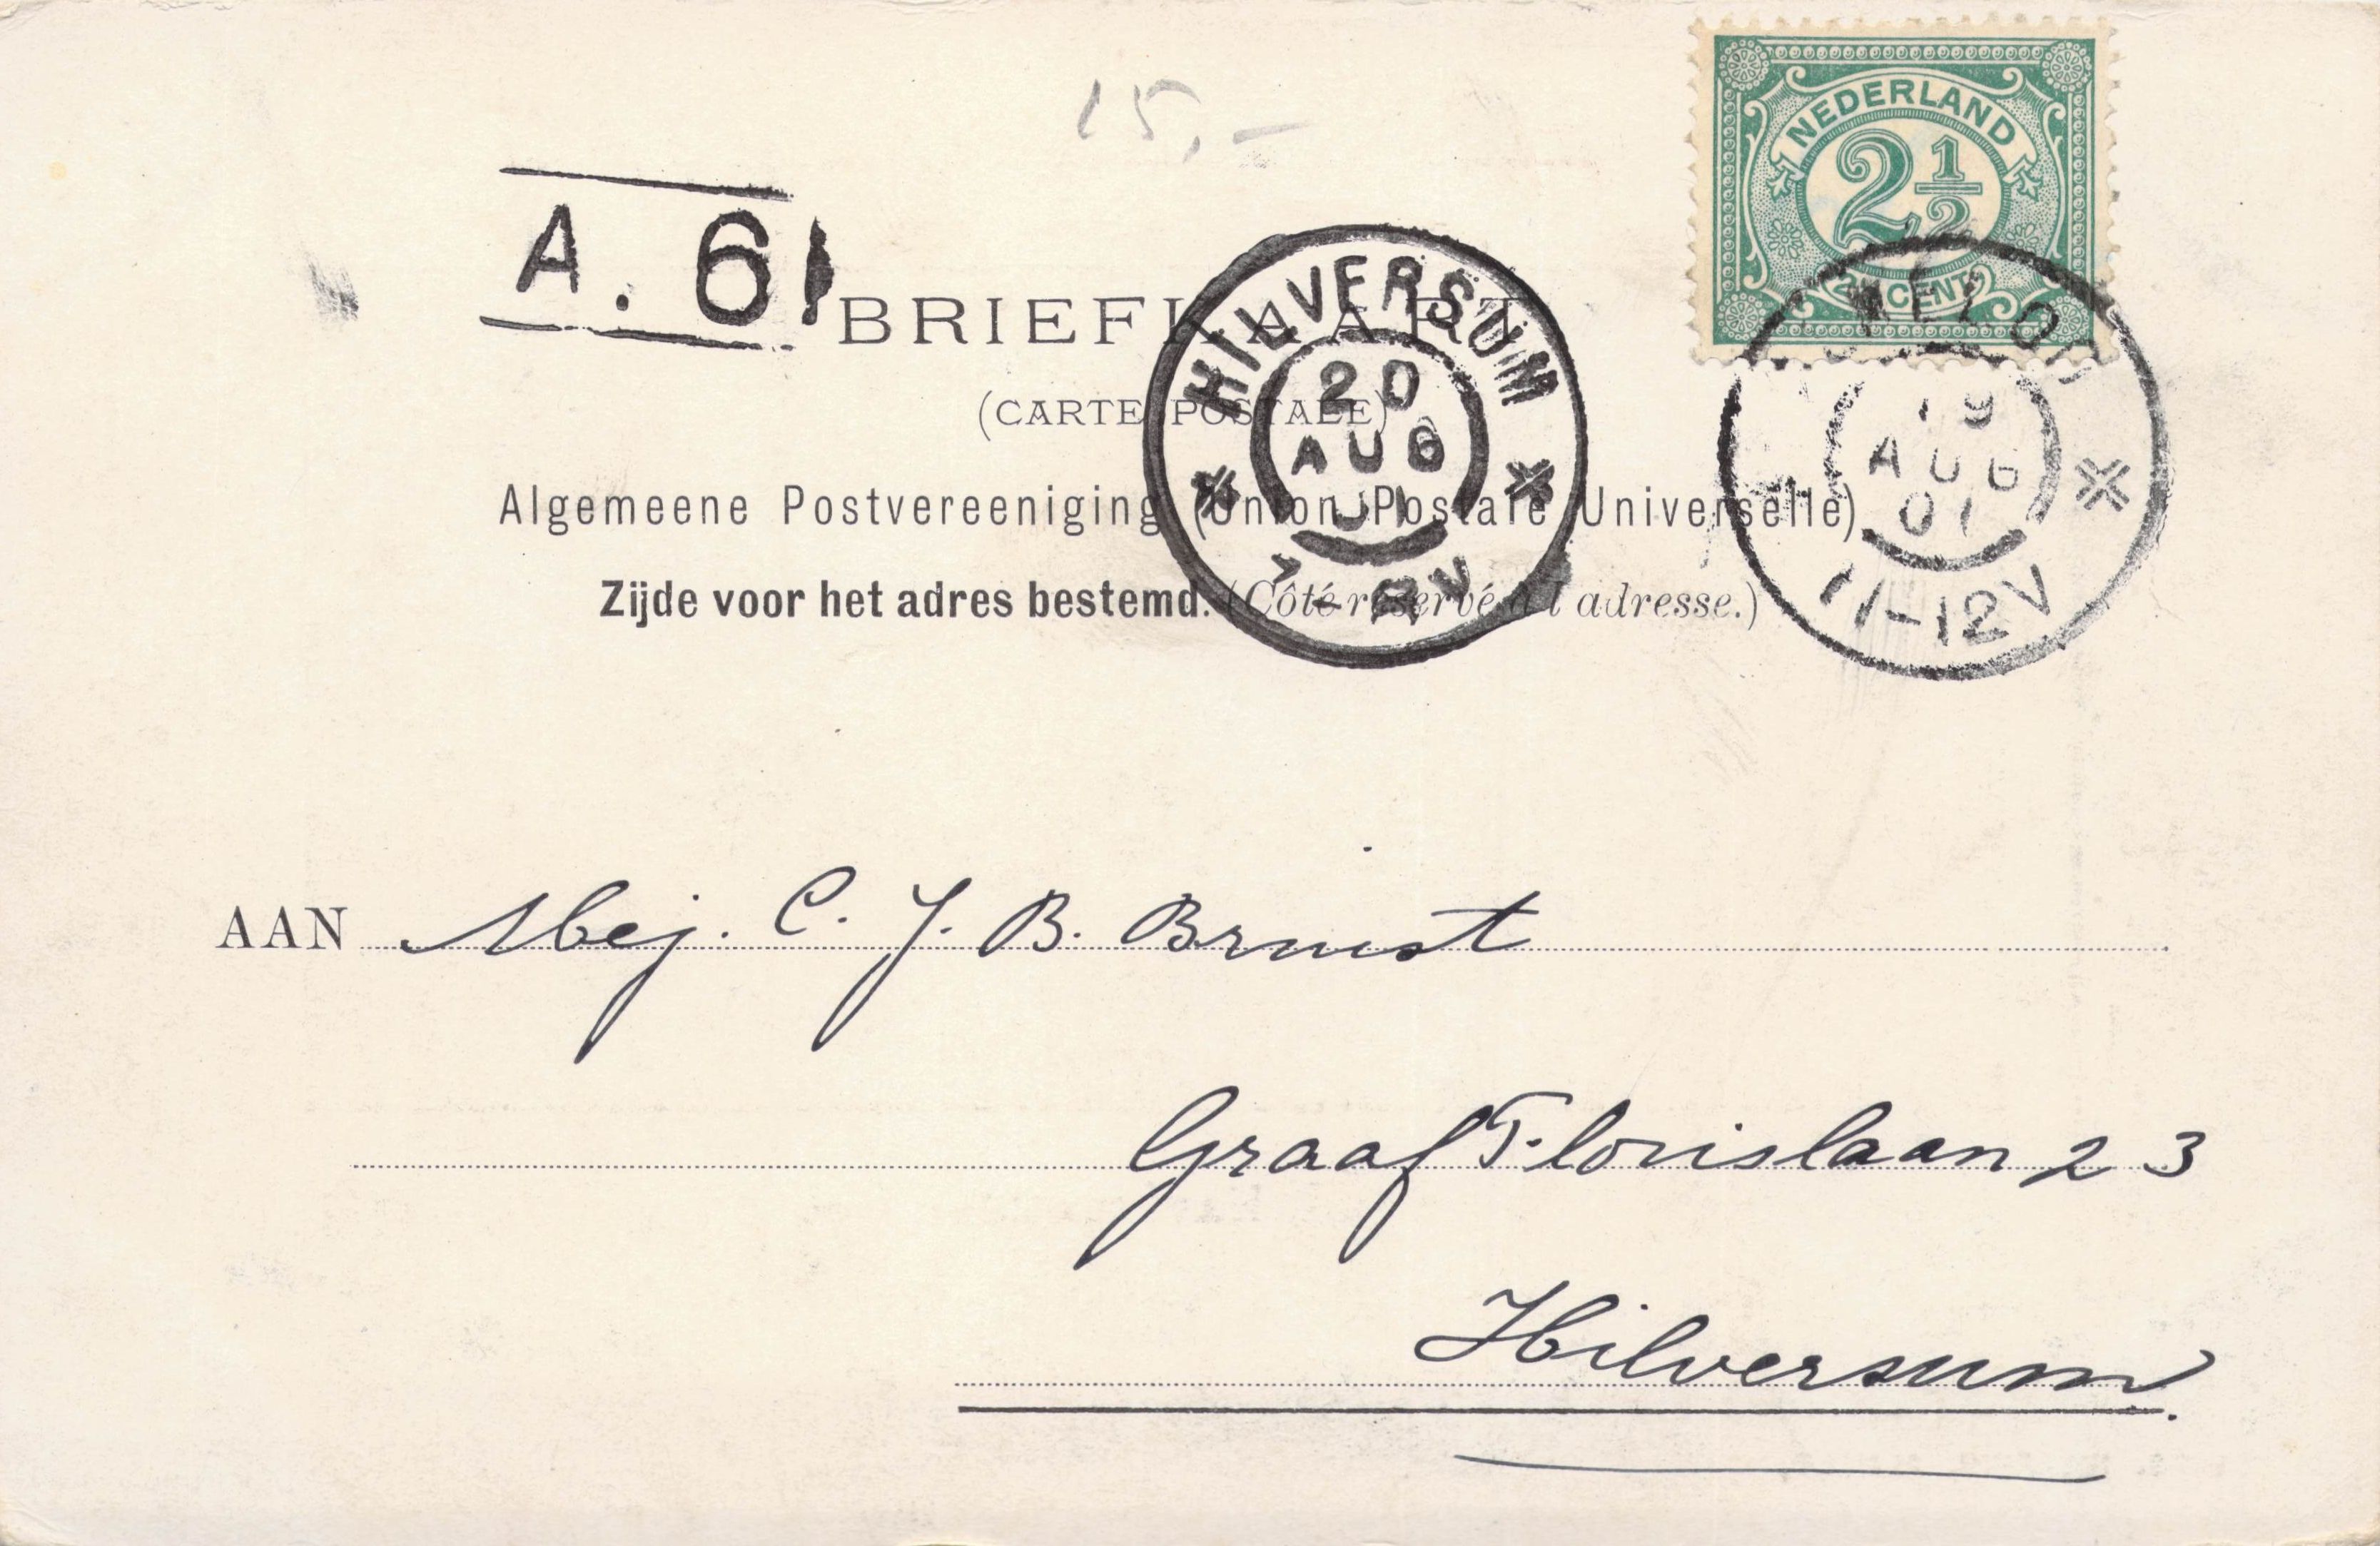 15,-
NEDERLAND
2 1/2
2½ CENT
A. 61
BRIEFKAART
(CARTE POSTALE)
Algemeene Postvereeniging (Union Postale Universelle)
Zijde voor het adres bestemd. (Côté réservé à l'adresse.)
HILVERSUM
20
AUG
01
7 - 8V
19
AUG
01
11-12V
AAN Mej. C. J. B. Bruist
Graaf Florislaan 23
Hilversum.